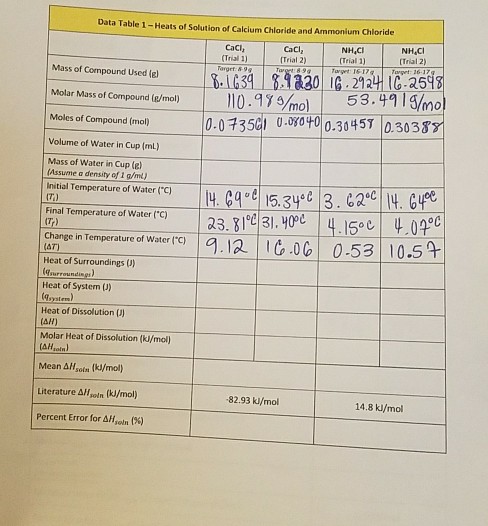 Data Table 1 – Heats of Solution of Calcium Chloride and Ammonium Chloride
CaCl₂ CaCl₂ NH₄Cl NH₄Cl
(Trial 1) (Trial 2) (Trial 1) (Trial 2)
Target: 8-9 g Target: 8-9 g Target: 16-17 g Target: 16-17 g
Mass of Compound Used (g) 8.1639 16.2924 16.2598
Molar Mass of Compound (g/mol) 110.98 g/mol 53.491 g/mol
Moles of Compound (mol) 0.073561 0.08040 0.30457 0.30388
Volume of Water in Cup (mL)
Mass of Water in Cup (g)
(Assume a density of 1 g/mL)
Initial Temperature of Water (°C) 14.69°C 15.34°C 3.62°C 14.64°C
(Tᵢ)
Final Temperature of Water (°C) 23.81°C 31.40°C 4.15°C 4.07°C
(T_f)
Change in Temperature of Water (°C) 9.12 16.06 0.53 10.57
(ΔT)
Heat of Surroundings (J)
(q_surroundings)
Heat of System (J)
(q_system)
Heat of Dissolution (J)
(ΔH)
Molar Heat of Dissolution (kJ/mol)
(ΔH_soln)
Mean ΔH_soln (kJ/mol)
Literature ΔH_soln (kJ/mol) -82.93 kJ/mol 14.8 kJ/mol
Percent Error for ΔH_soln (%)